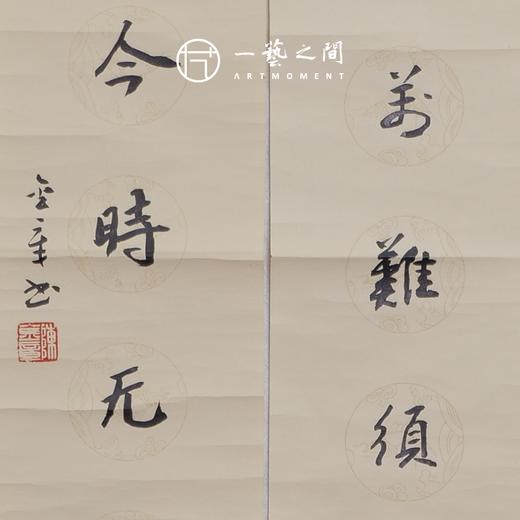 一藝之間
ARTMOMENT
萬難須
今時无
金章书
陳金章